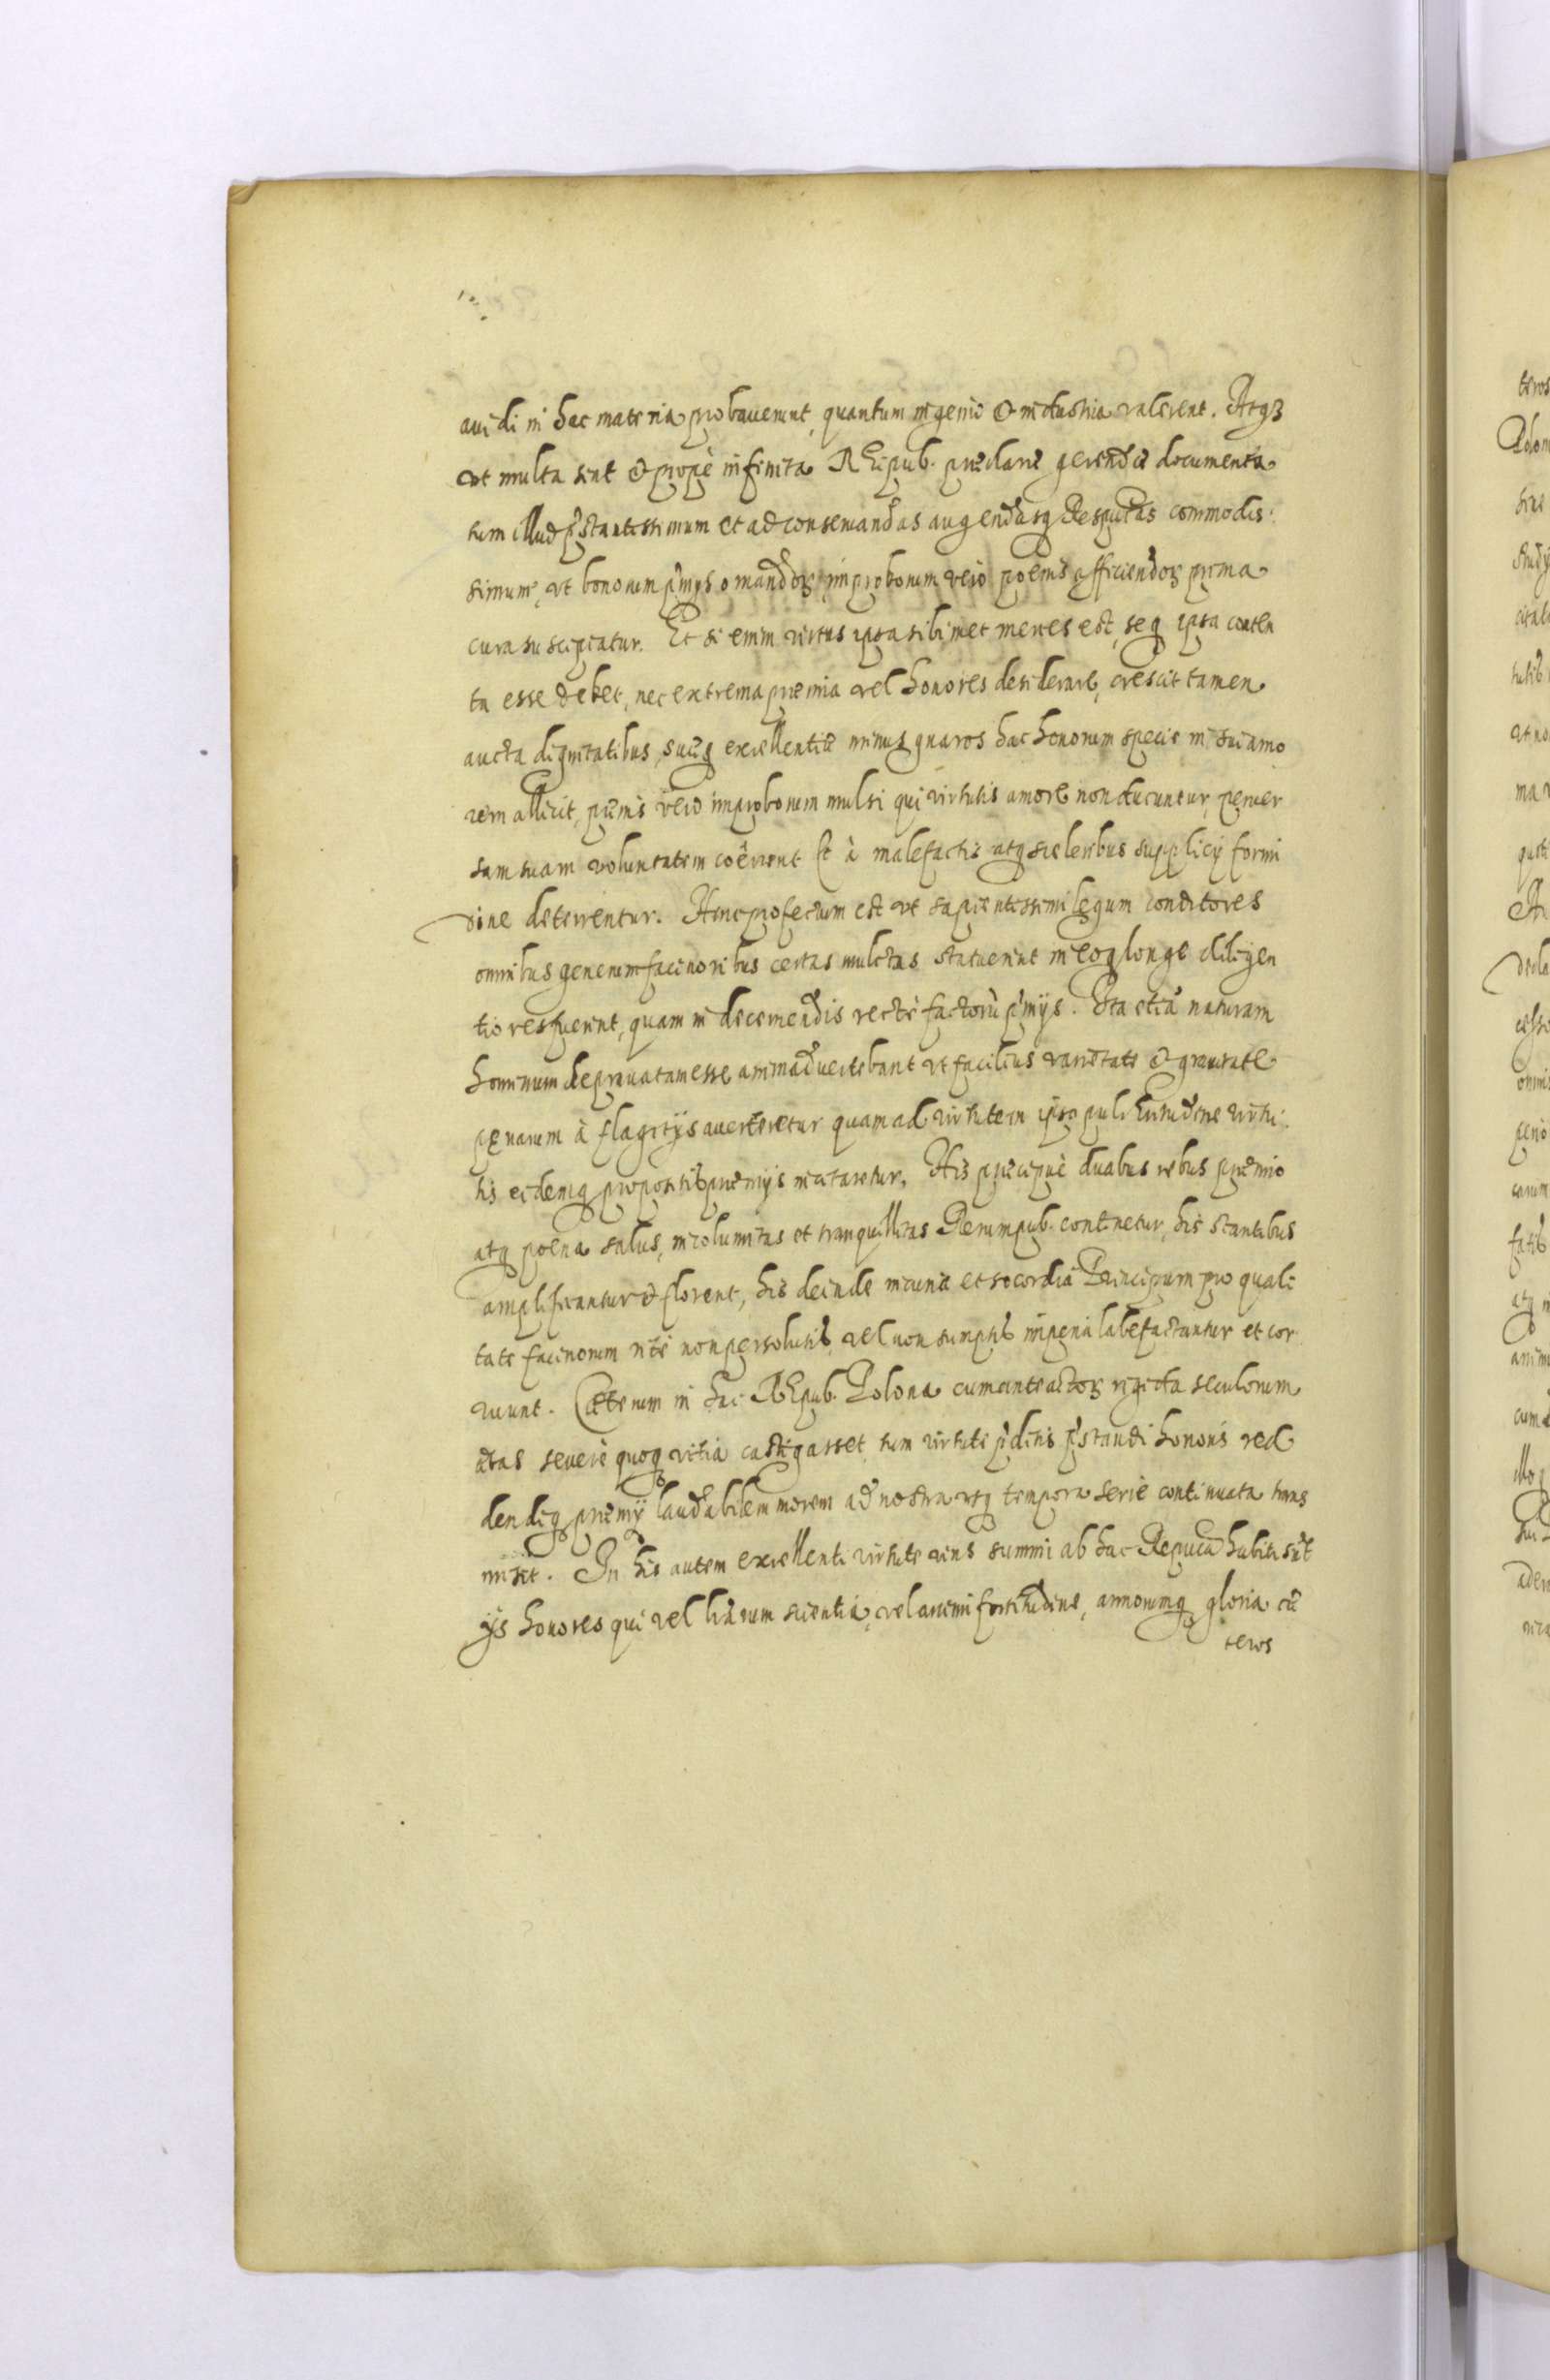 auidi in hac materia probauerunt, quantum ingenio & industria valerent. Atqȝ
ut multa sint & propè infinita REipub. præclarè gerendæ documenta
tum illud p̃stantissimum et ad conseruandas augendasq Respu͠cas commodis:
simum, vt bonorum p̃mijs ornandoꝝ, improborum verò poenis afficiendoꝝ prima
cura suscipiatur. Et si enim virtus ipsa sibimet merces est, seq ipsa conten
ta esse debet, nec extrema præmia vel honores desiderare, crescit tamen
aucta dignitatibus, suæq excellentiæ minus gnaros hac honorum specie in sui amo
rem allicit, pœnis verò improborum multi qui virtutis amore non ducuntur, peruer
sam suam voluntatem coêrcent Et à malefactis atq sceleribus supplicij formi
dine deterrentur. Hinc profectum est vt sapientissimi legum conditores
omnibus generum facinoribus certas mulctas statuerint in eoq longe diligen
tiores fuerint, quam in decernendis rectè factorũ p̃mijs. Ita etiã naturam
hominum deprauatam esse animaduertebant vt facilius varietate & grauitate
pęnarum à flagitijs auerteretur quam ad virtutem ipsa pulchritudine virtu:
tis eidemq propositis præmijs incitaretur. His præcipuè duabus rebus præmio
atq poena salus, incolumitas et tranquillitas Rerumpub. continetur, his stantibus
amplificantur & florent, his deinde incuria et socordia Principum pro quali
tate facinorum ritè non persolutis, vel non sumptis imperia labefactantur et cor
ruunt. Cæterum in hac REpub. Polona cum anteactoꝝ seculorum
ætas seuerè quoq vitia castigasset, tum virtute p̃ditis p̃standi honoris red
dendiq præmij laudabilem morem ad nostra usq tempora serie continuata trans
misit. In his autem excellenti virtute viris summi ab hac Repu͠ca habiti sũt
ijs honores qui vel lr̃arum scientia, vel animi fortitudine, armorumq gloria cæ
teros